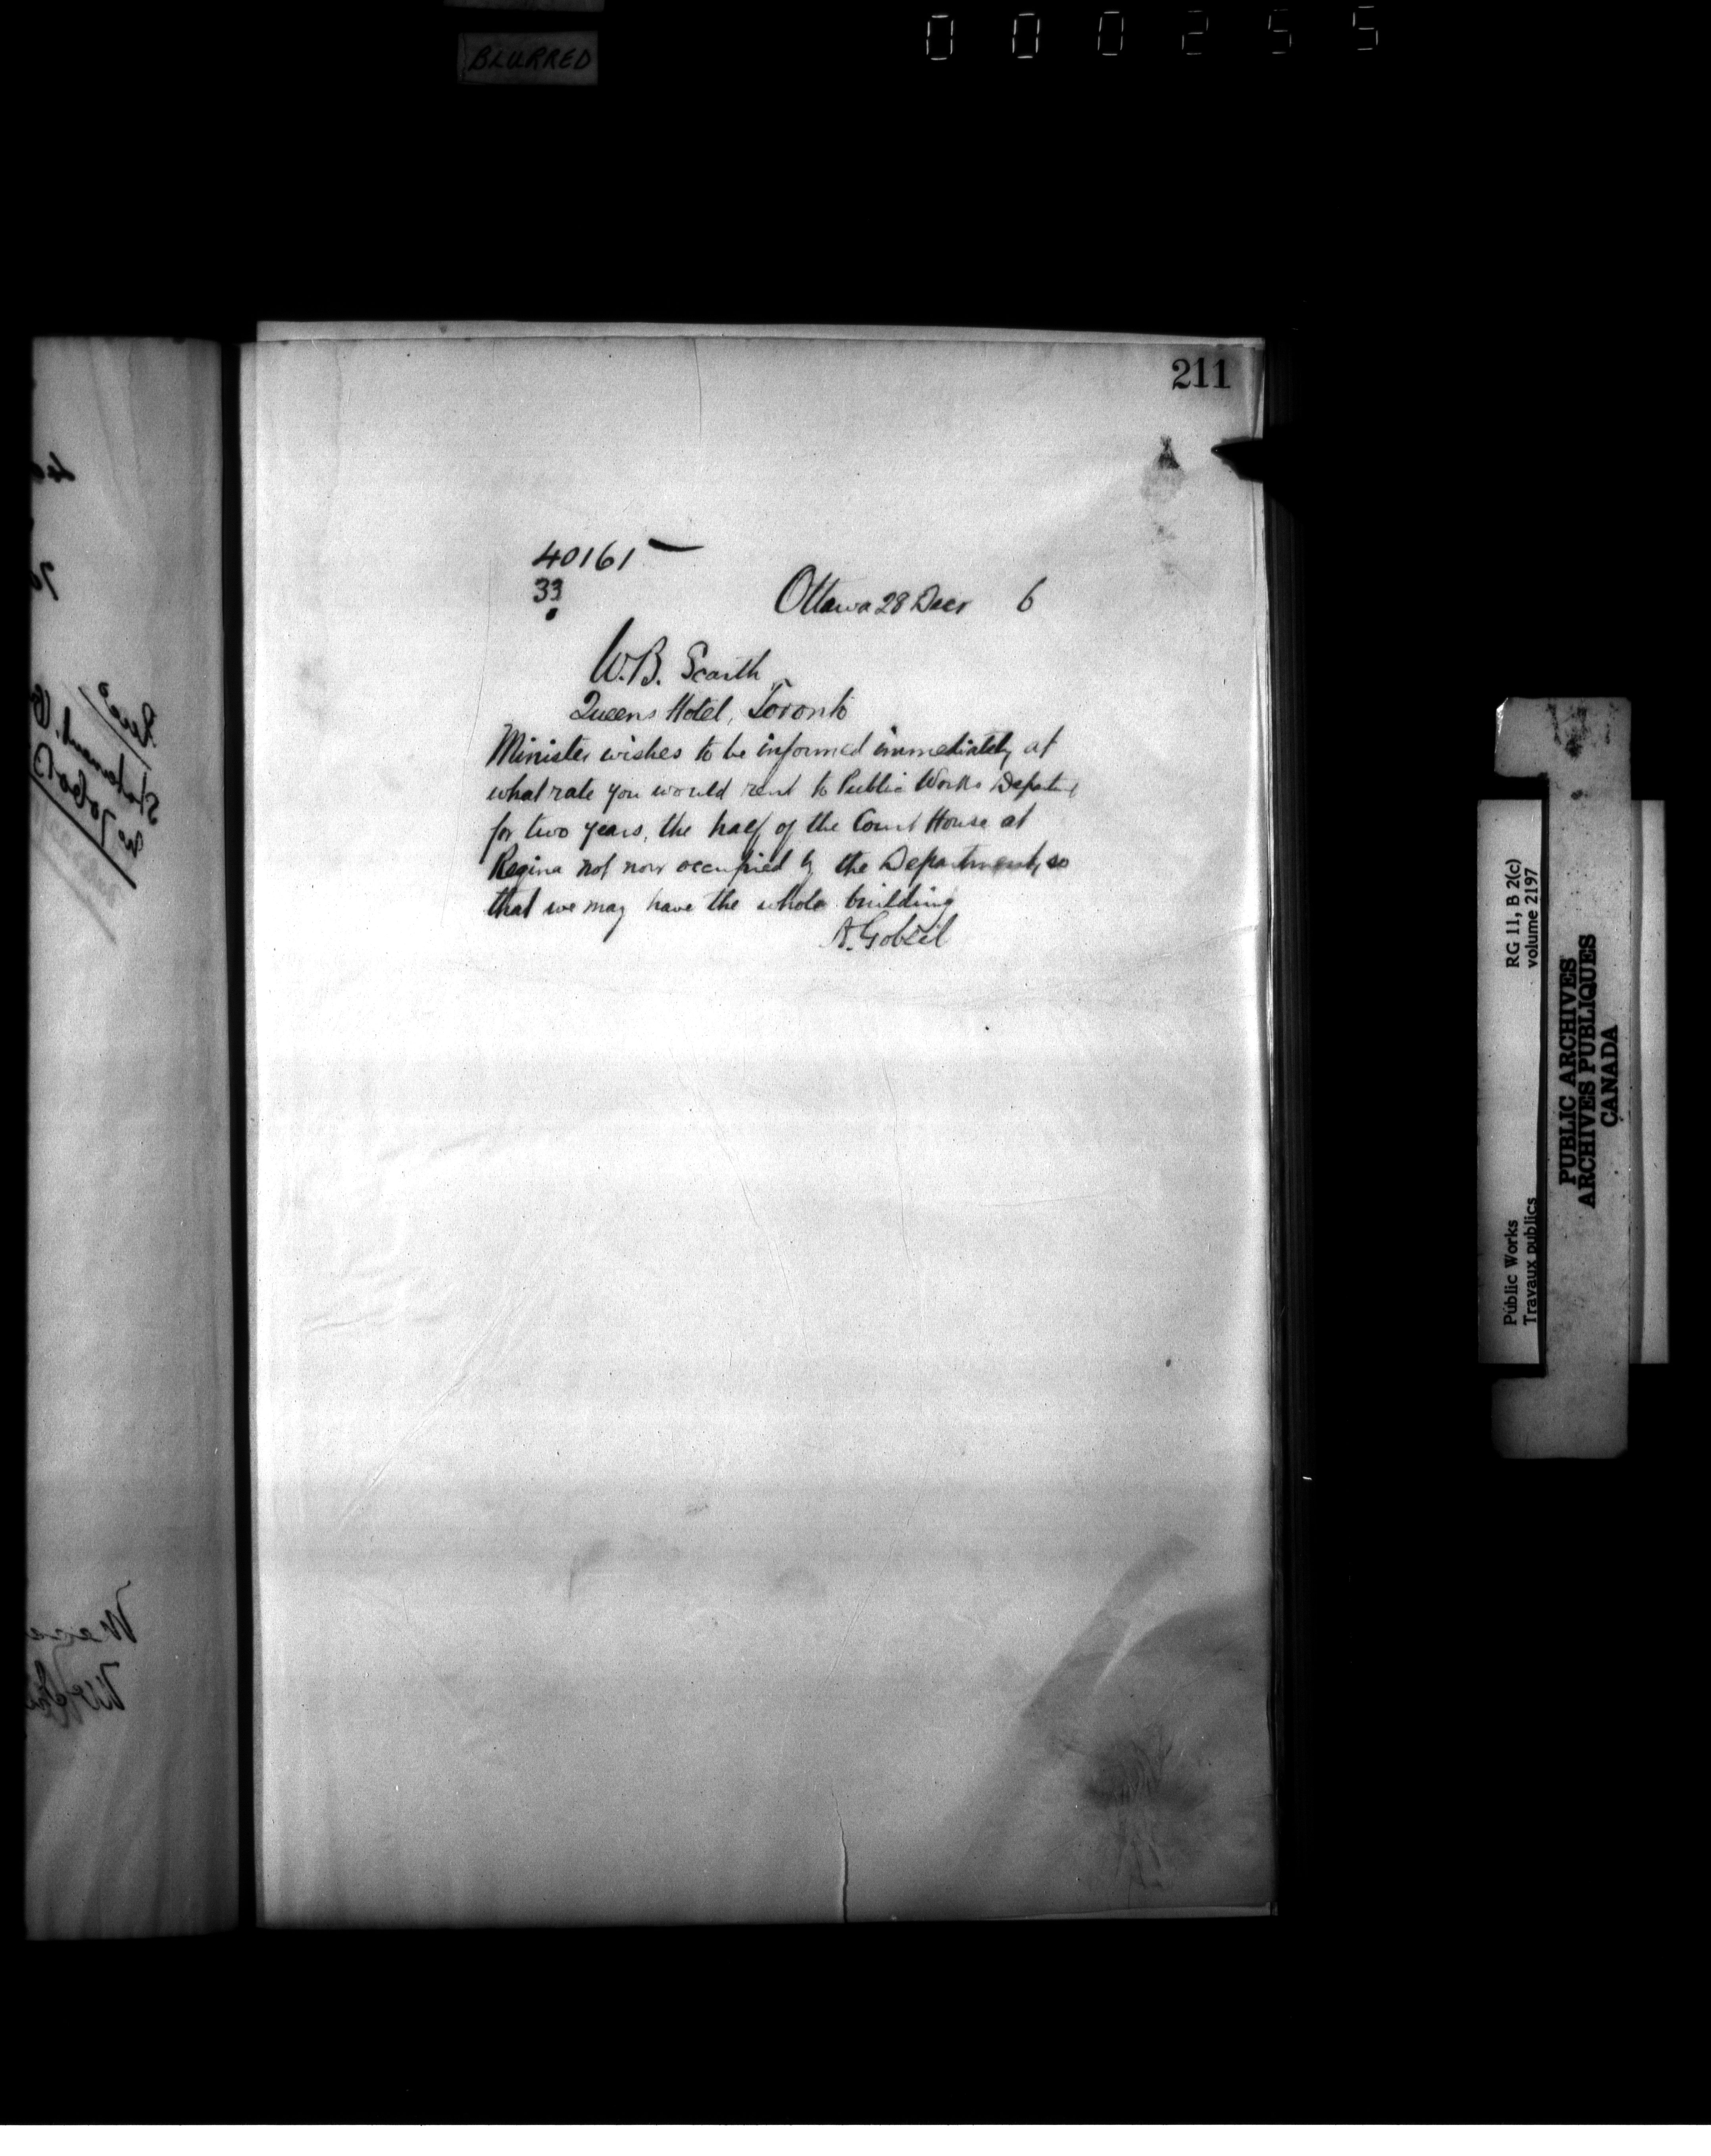 BLURRED
000255
211
40161
33
Ottawa 28 Decr 6
W.B. Scarth
Queens Hotel, Toronto
Minister wishes to be informed immediately at
what rate you would rent to Public Works Departmt
for two years, the half of the Court House at
Regina not now occupied by the Department, so
that we may have the whole building
A. Gobeil
RG 11, B 2(c)
volume 2197
Public Works
Travaux publics
PUBLIC ARCHIVES
ARCHIVES PUBLIQUES
CANADA